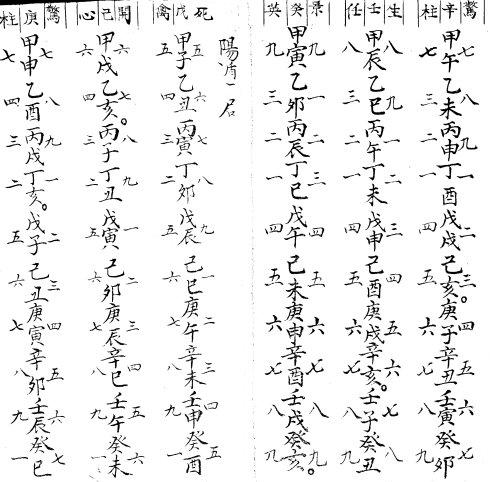 驚七八九一二三四
辛甲午乙未丙申丁酉戊戌己亥。庚子辛丑壬寅癸卯
柱七三二一四五六七八九
生八九一二三四五六七
壬甲辰乙巳丙午丁未戊申己酉庚戌辛亥。壬子癸丑
任八三二一四五六七八九
景九一二三四五六七八九
癸甲寅乙卯丙辰丁巳戊午己未庚申辛酉壬戌癸亥。
英九三二一四五六七八九
陽遁一局
死五六七八九一二三四
戊甲子乙丑丙寅丁卯戊辰己巳庚午辛未壬申癸酉
禽五四三二五六七八九一
開六七八九一二三四五六
己甲戌乙亥。丙子丁丑戊寅己卯庚辰辛巳壬午癸未
心六四三二五六七八九一
驚七八九一二三四五六七
庚甲申乙酉丙戌丁亥。戊子己丑庚寅辛卯壬辰癸巳
柱七四三二五六七八九一